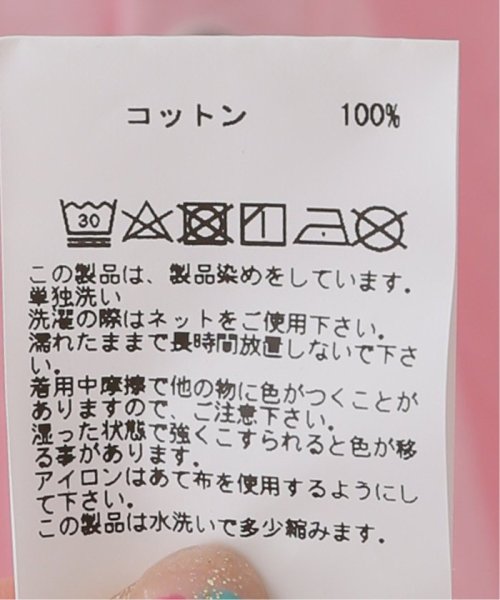 コットン 100%
30
この製品は、製品染めをしています.
単独洗い
洗濯の際はネットをご使用下さい.
濡れたままで長時間放置しないで下さ
い.
着用中摩擦で他の物に色がつくことが
ありますので、ご注意下さい.
湿った状態で強くこすられると色が移
る事があります.
アイロンはあて布を使用するようにし
て下さい.
この製品は水洗いで多少縮みます.